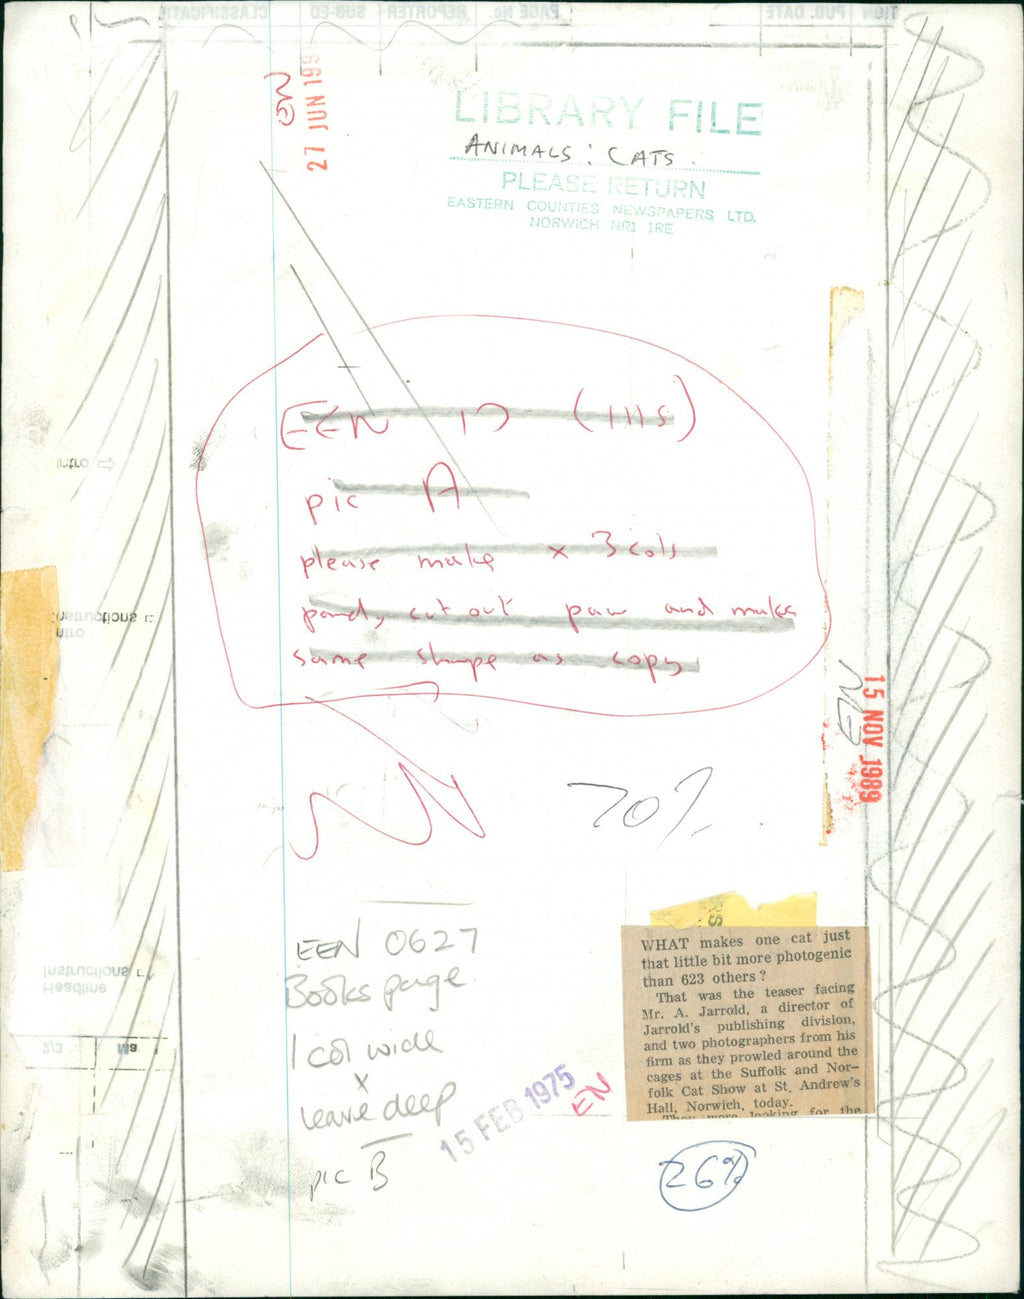 PAGE No.
REPORTER
SUB-ED
PUB. DATE
EN
27 JUN 199
LIBRARY FILE
ANIMALS: CATS.
PLEASE RETURN
EASTERN COUNTIES NEWSPAPERS LTD.
NORWICH NR1 1RE
EEN 17 (111s)
pic A
please make x 3 cols
and, cut out paw and make
same shape as copy
Intro
Instructions
Intro
15 NOV 1989
70%
EEN 0627
Books page
1 col wide
x
leave deep
pic B
15 FEB 1975
EN
RS
WHAT makes one cat just
that little bit more photogenic
than 623 others?
That was the teaser facing
Mr. A. Jarrold, a director of
Jarrold's publishing division,
and two photographers from his
firm as they prowled around the
cages at the Suffolk and Nor-
folk Cat Show at St. Andrew's
Hall, Norwich, today.
They were looking for the
Instructions
Headline
2/3
26%